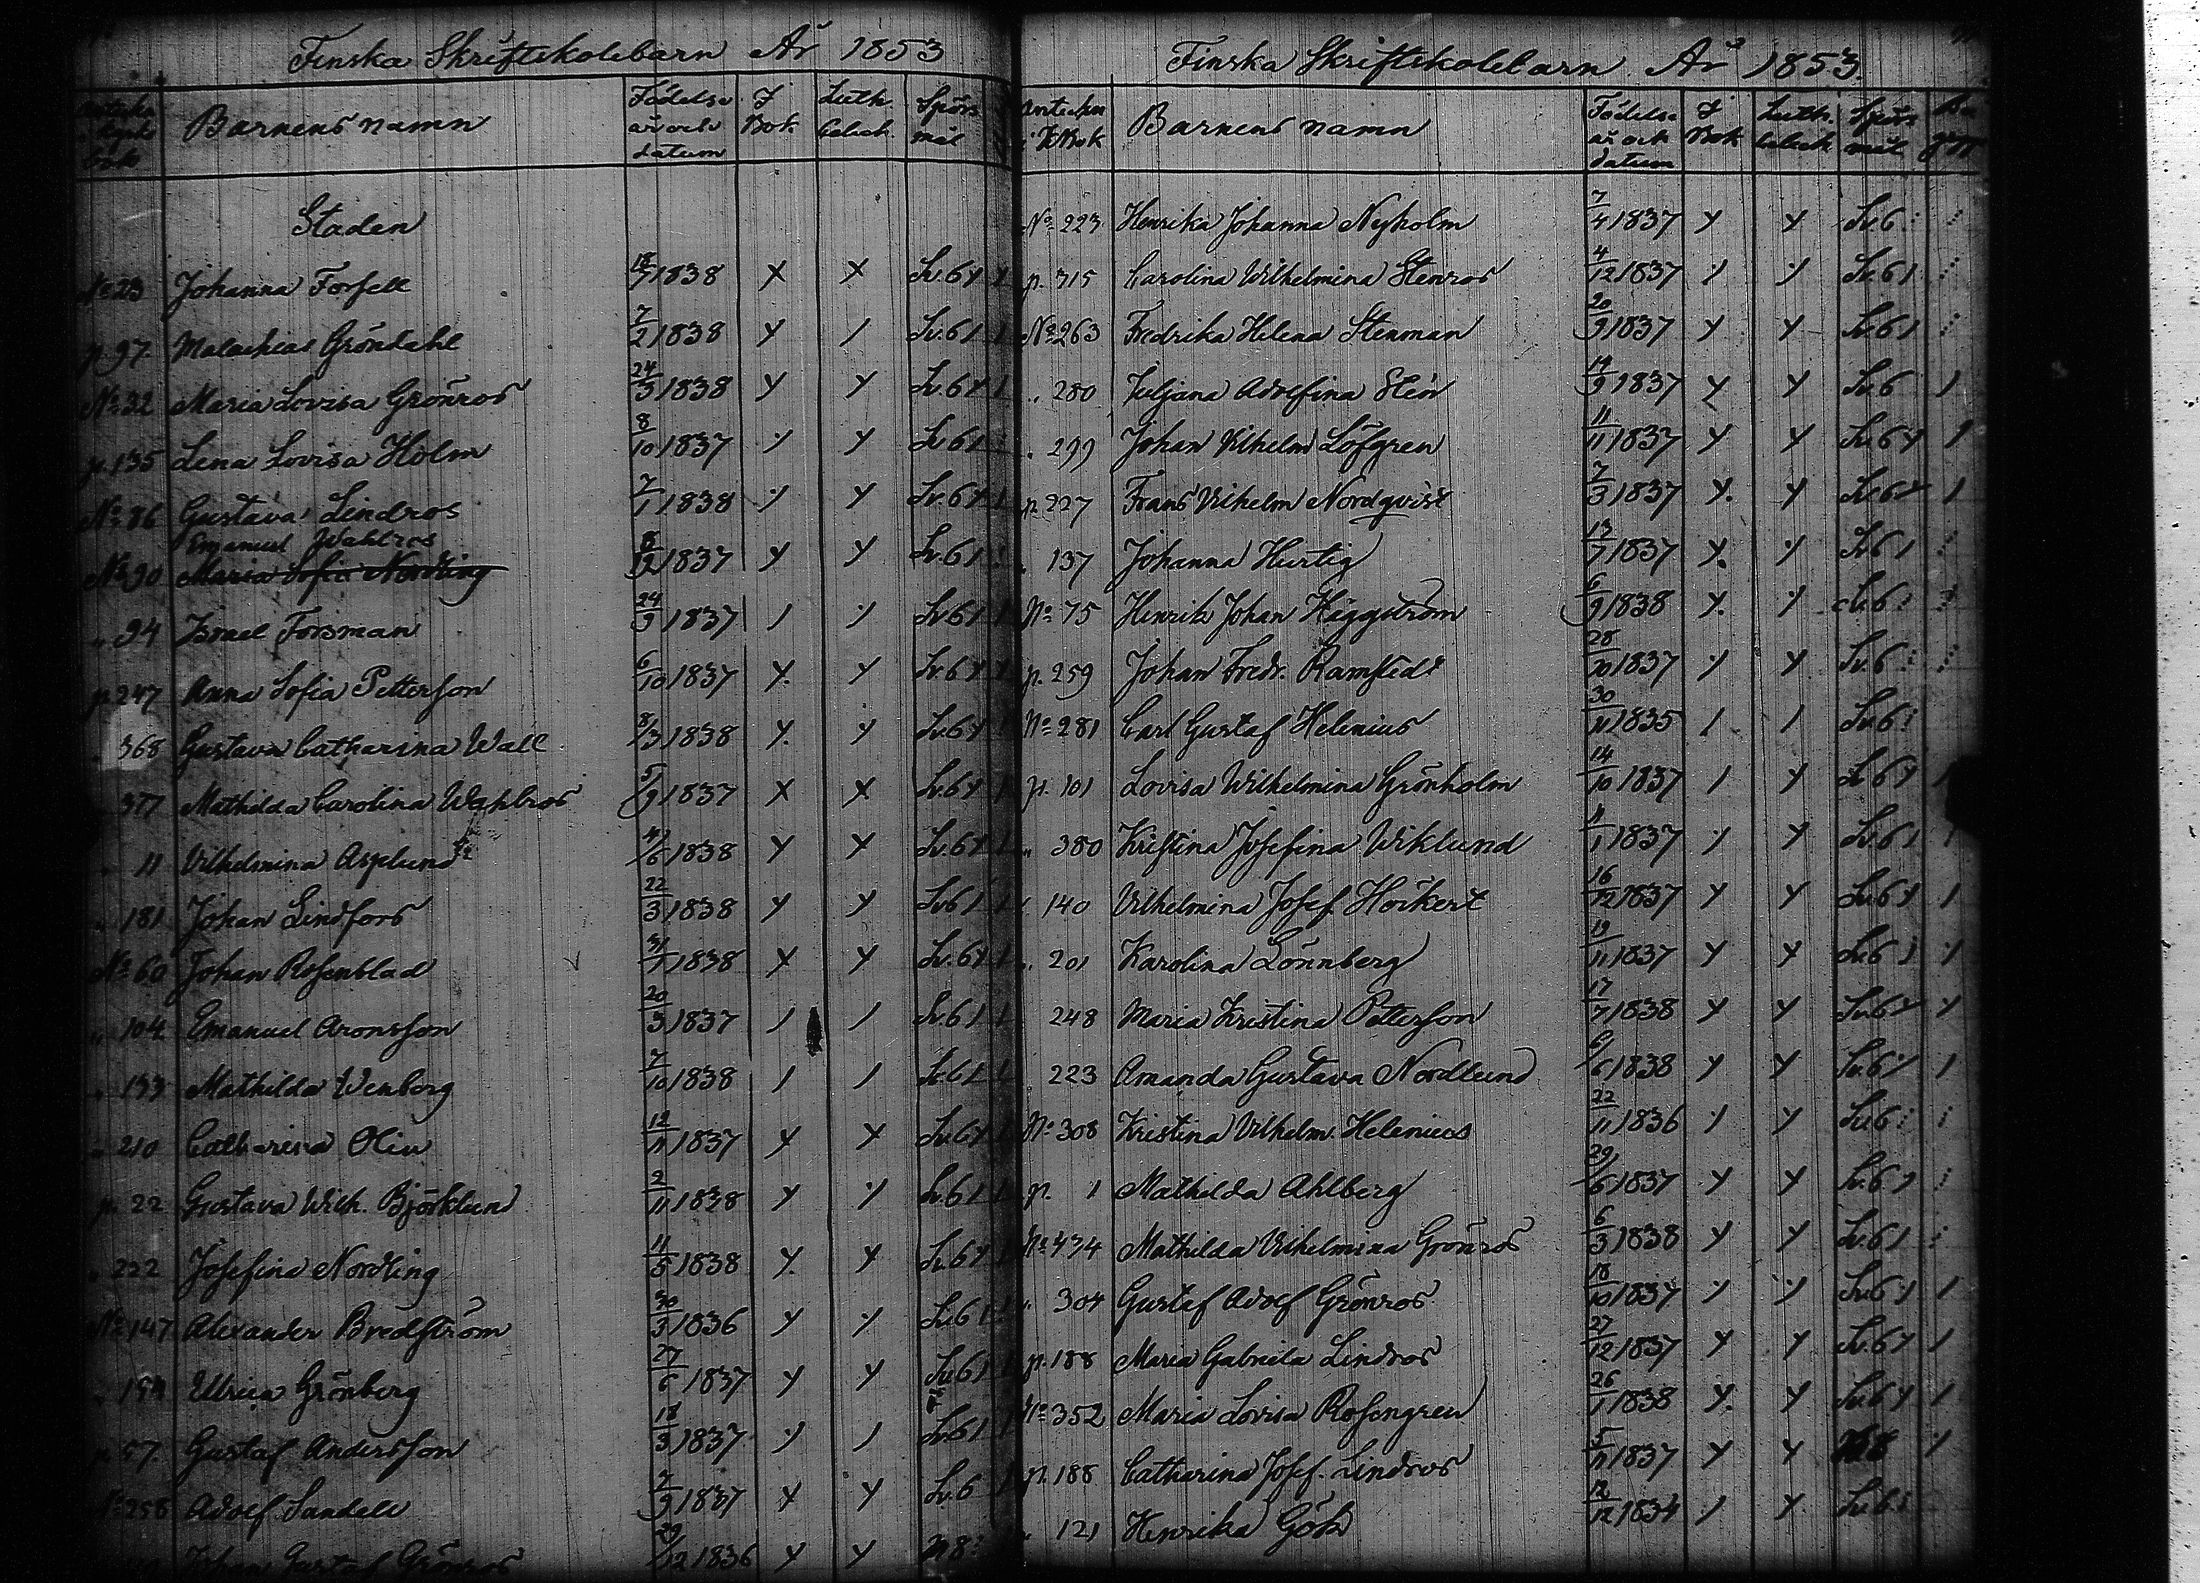 Finska Skriftskolebarn År 1853
Barnens namn Födelse år och datum I Bok Luth. Spörs mål
Staden
No 23 Johanna Forsell 18/7 1838 X X Sv. 6 y
p. 97 Malachias Gröndahl 7/2 1838 y / Sv. 6 /
No 32 Maria Lovisa Grönros 24/3 1838 y y Sv. 6 y
p. 135 Lena Lovisa Holm 8/10 1837 y y Sv 6 /
No 86 Gustava Lindros 7/1 1838 y y Sv. 6 y
Emanuel Wahlros
No 90 Maria Sofia Nordling /12 1837 y y Sv. 6 /
" 94 Israel Forsman 24/9 1837 / y Sv 6 /
p. 247 Anna Sofia Petterson 6/10 1837 y. y Sv. 6 y
" 368 Gustava Catharina Wall 8/3 1838 y. y Sv. 6 y
377 Mathilda Carolina Wahlros 5/9 1837 X X Sv. 6 y
" 11 Vilhelmina Asplund /6 1838 y X Sv. 6 y
" 181 Johan Lindfors 22/3 1838 y y Sv 6 /
No 60 Johan Rosenblad 31/7 1838 X y Sv. 6 y
" 104 Emanuel Aronsson 20/3 1837 / / Sv. 6 /
" 133 Mathilda Wenberg 7/10 1838 / / Sv. 6 /
" 210 Catharina Olin 12/11 1837 y X Sv. 6 y
p. 22 Gustava Wilh. Björklund 2/11 1838 y y Sv. 6 /
" 222 Josefina Nordling 11/5 1838 y. y Sv. 6 y
No 147 Alexander Bredström 30/3 1836 y y Sv. 6 /
" 194 Ulrica Grönberg 27/6 1837 y y Sv. 6 /
p. 57. Gustaf Andersson 18/3 1837 y / Sv. 6 /
No 258 Adolf Sandell 7/9 1837 X y Sv. 6
Johan Gustaf Grönros 29/12 1836 y y N 8
Finska Skriftskolebarn År 1853
Barnens namn Födelse år och datum I Bok Luth. Spörs mål
No 223 Henrika Johanna Nyholm 7/4 1837 y y Sv. 6
p. 315 Carolina Wilhelmina Stenros 4/12 1837 / y Sv. 6 /
No 263 Fredrika Helena Stenman 20/9 1837 y y Sv 6 /
" 280 Juljana Adolfina Sten 14/9 1837 y y Sv. 6 /
" 299 Johan Vilhelm Löfgren 11/11 1837 y y Sv. 6 y /
p. 227 Frans Vilhelm Nordqvist 7/3 1837 y. y Sv. 6 y /
" 137 Johanna Hurtig 13/7 1837 y. y Sv 6 /
No 75 Henrik Johan Häggström 6/9 1838 y. y Sv. 6
p. 259 Johan Fredr. Ramstedt 28/10 1837 y y Sv. 6
No 281 Carl Gustaf Helenius 30/11 1835 / / Sv. 6
p. 101 Lovisa Wilhelmina Grönholm 14/10 1837 / y Sv 6 y
" 380 Kristina Josefina Wiklund 11/1 1837 y y Sv. 6 /
" 140 Vilhelmina Josef. Höckert 16/12 1837 y y Sv. 6 y /
" 201 Karolina Lönnberg 19/11 1837 y y Sv. 6 / y
248 Maria Kristina Petterson 17/7 1838 y y Sv. 6 y y
223 Amanda Gustava Nordlund 6/6 1838 y y Sv. 6 y /
No 308 Kristina Vilhelm. Helenius 22/11 1836 y y Sv. 6
p. 1 Mathilda Ahlberg 29/6 1837 y y Sv. 6 /
No 434 Mathilda Vilhelmina Grönros 6/3 1838 y y Sv. 6 /
" 304 Gustaf Adolf Grönros 18/10 1837 y y Sv. 6 y /
p. 188 Maria Gabriela Lindros 27/12 1837 y y Sv. 6 y /
No 352 Maria Lovisa Rosengren 26/1 1838 y. y Sv. 6 y /
p. 188 Catharina Josef. Lindros 5/11 1837 y y y
" 121 Henrika Gök 12/12 1834 / y Sv. 6